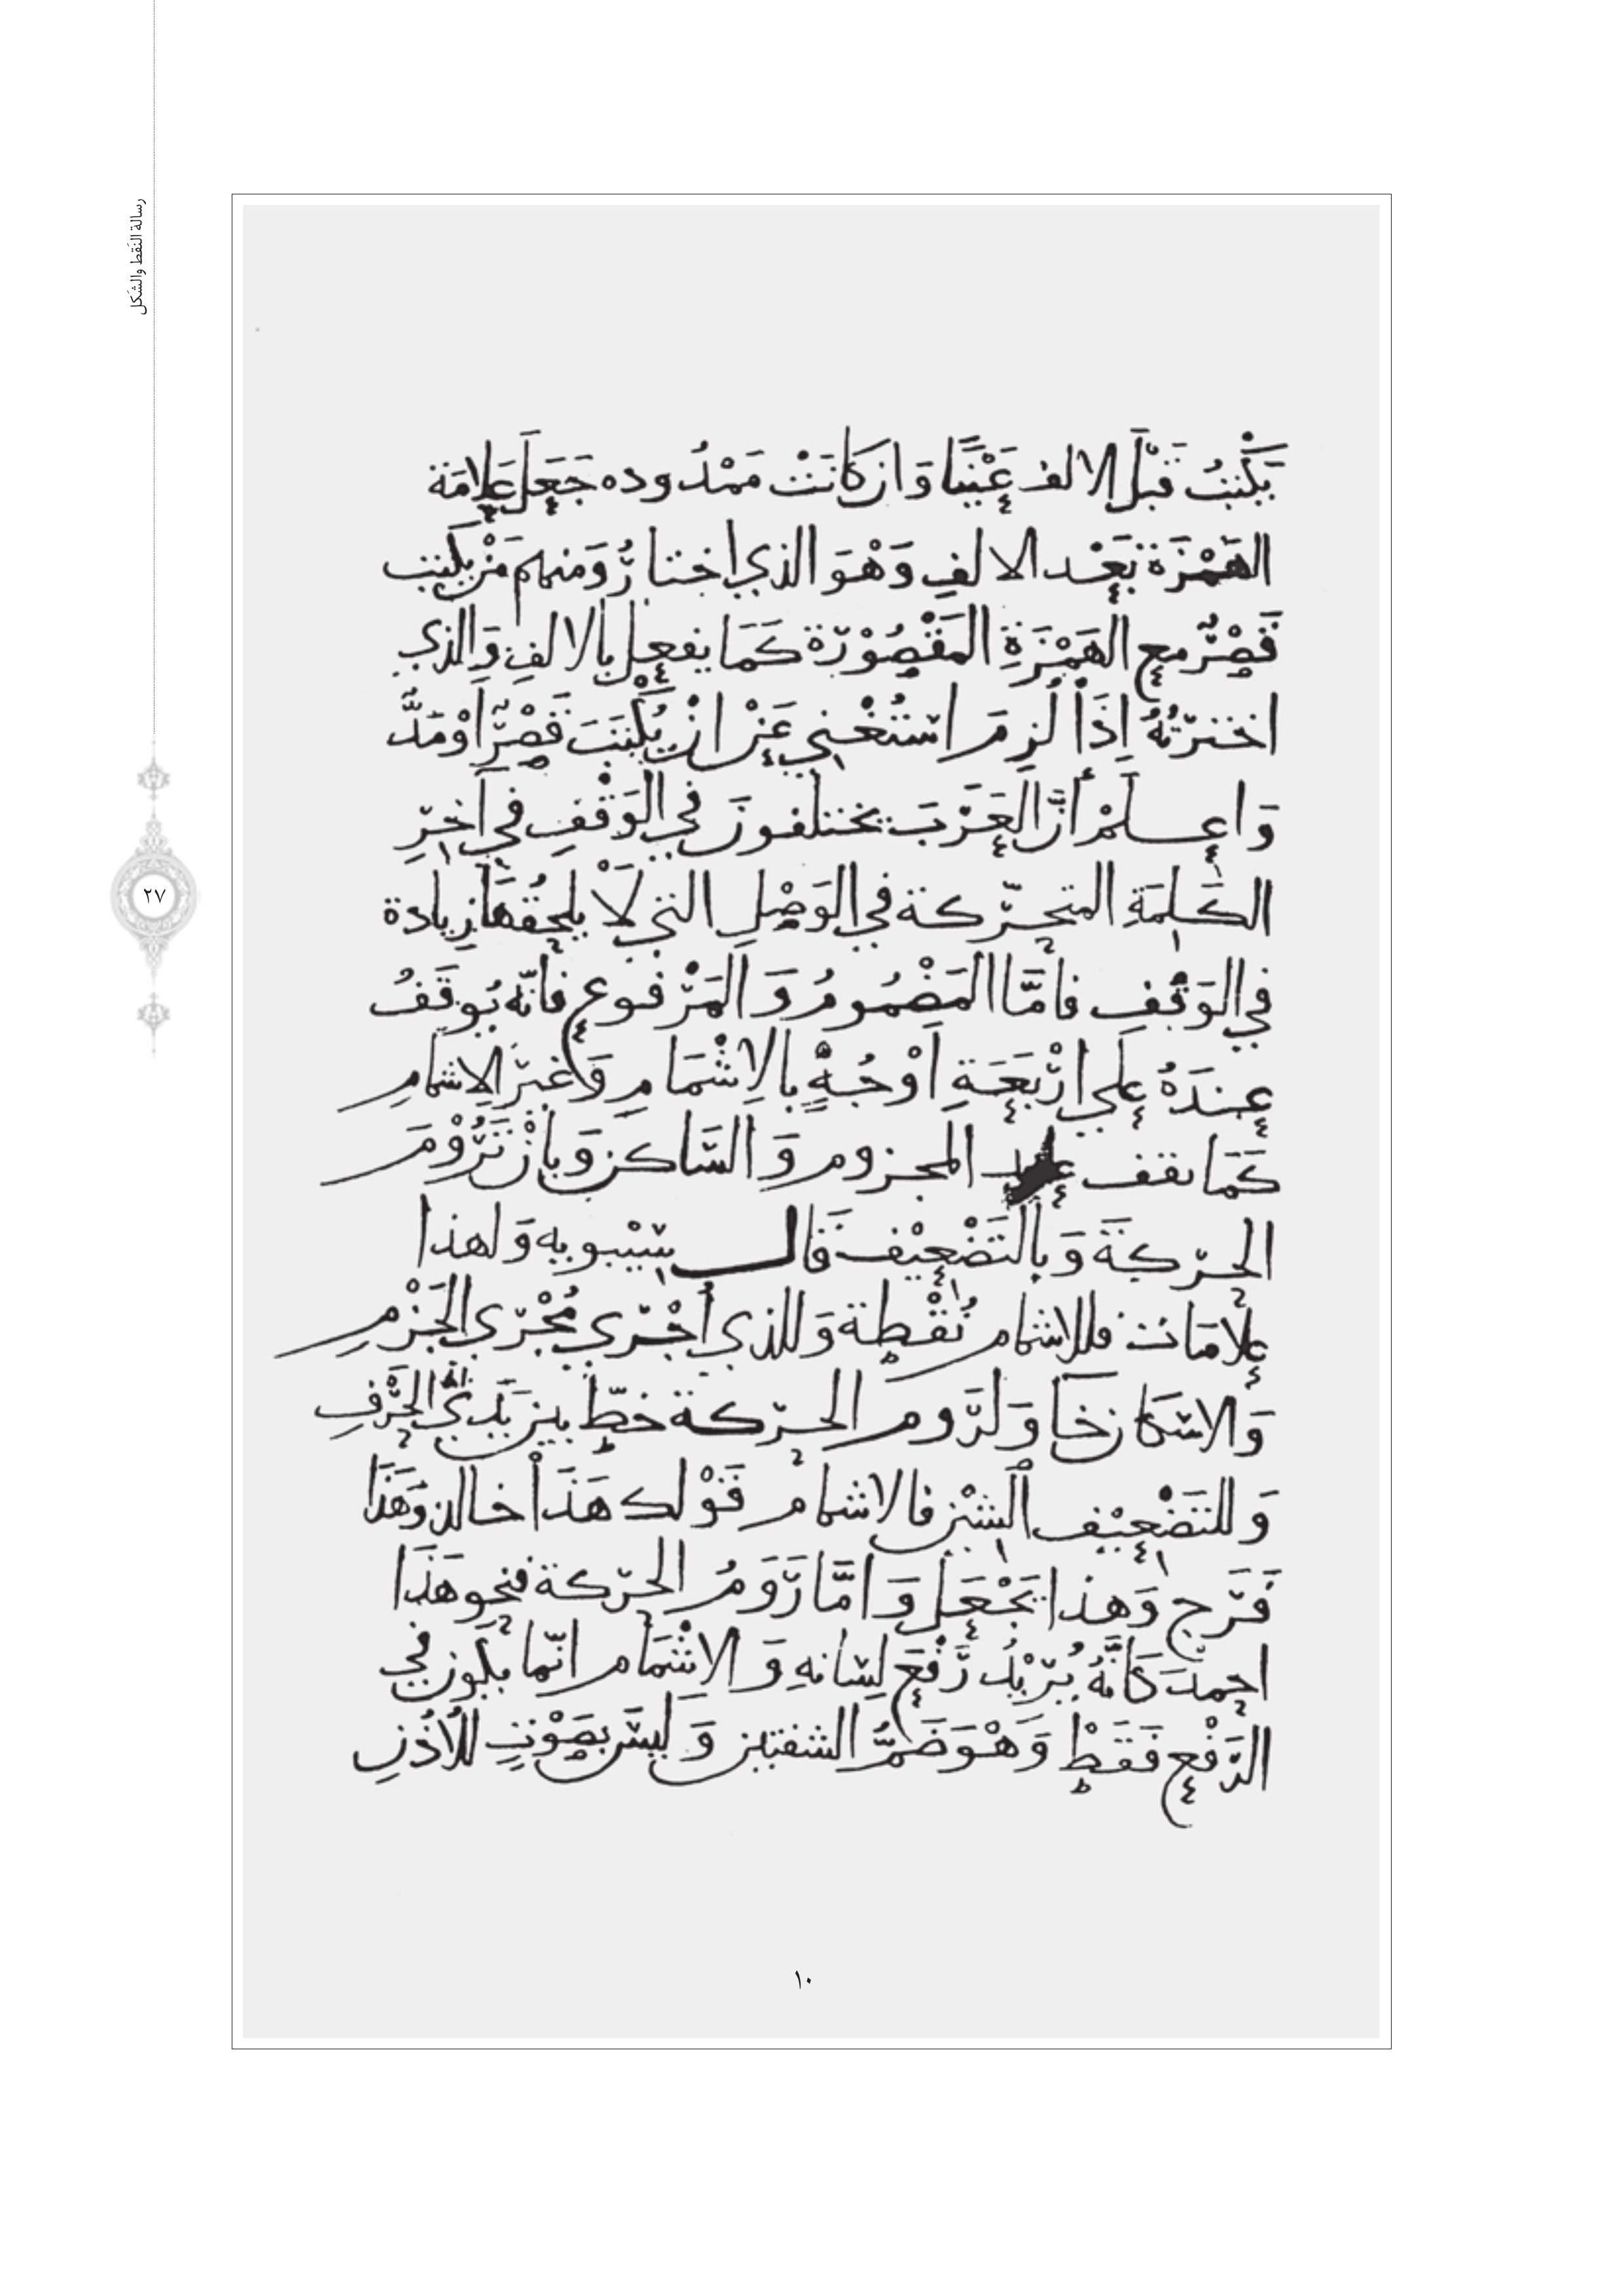 رسالة النقط والشكل
٢٧
يَكْتُبُ قَبْلَ الالف عَيْنًا وَان كانَتْ مَمْدُوده جَعَلَ عَلامَة
الهَمْزَة بَعْد الالفِ وَهْوَ الذي اختارُ وَمنهم مَنْ يكتب
قَصْرٌ مع الهَمْزَةِ المَقْصُوْرَة كَمَا يفعل بالالفِ وَالذي
اخترْتُهُ إِذَا لَزِمَ استُغْنِي عَنْ انْ يُكْتَبَ قَصْرٌ اوْ مَدٌّ
وَاعلَمْ أَنَّ العَرَبَ يختلفونَ في الوَقْفِ في آخِرِ
الكَلِمَةِ المتحرّكة في الوَصْلِ التي لَا يلحقُهَا زيادة
في الوَقْفِ فامَّا المَضْمُومُ وَالمَرْفوع فانّه يُوقَفُ
عِندَهُ على ارْبَعَةِ اَوْجُهٍ بالاِشْمَامِ وَغير الاشمامِ
كَمَا يقف عند المجزوم وَالسَّاكن وَبانْ تَرُوْمَ
الحرَكة وَبالتَضْعيْف قَال سِيْبويه وَلهذا
علامَات فللاشمام نُقْطة وَللذي أُجْري مُجْرَى الجَزْمِ
وَالاسْكان خَا وَلرَوم الحركة خطٌّ بين يَدَي الحَرْفِ
وَللتَضْعِيْف الشين فالاشمامُ قَوْلك هَذَا خالد وَهَذَا
فَرَج وَهذا يَجْعَل وَامَّا رَوَمُ الحرَكة فنحو هَذَا
احمدَ كَانَّهُ يُرِيْدُ رَفْعَ لِسَانهِ وَالاشْمَام انّما يكون في
الرَفْع فَقَطْ وَهْوَ ضَمُّ الشفتين وَليسَ بصَوْتٍ للاُذُنِ
١٠